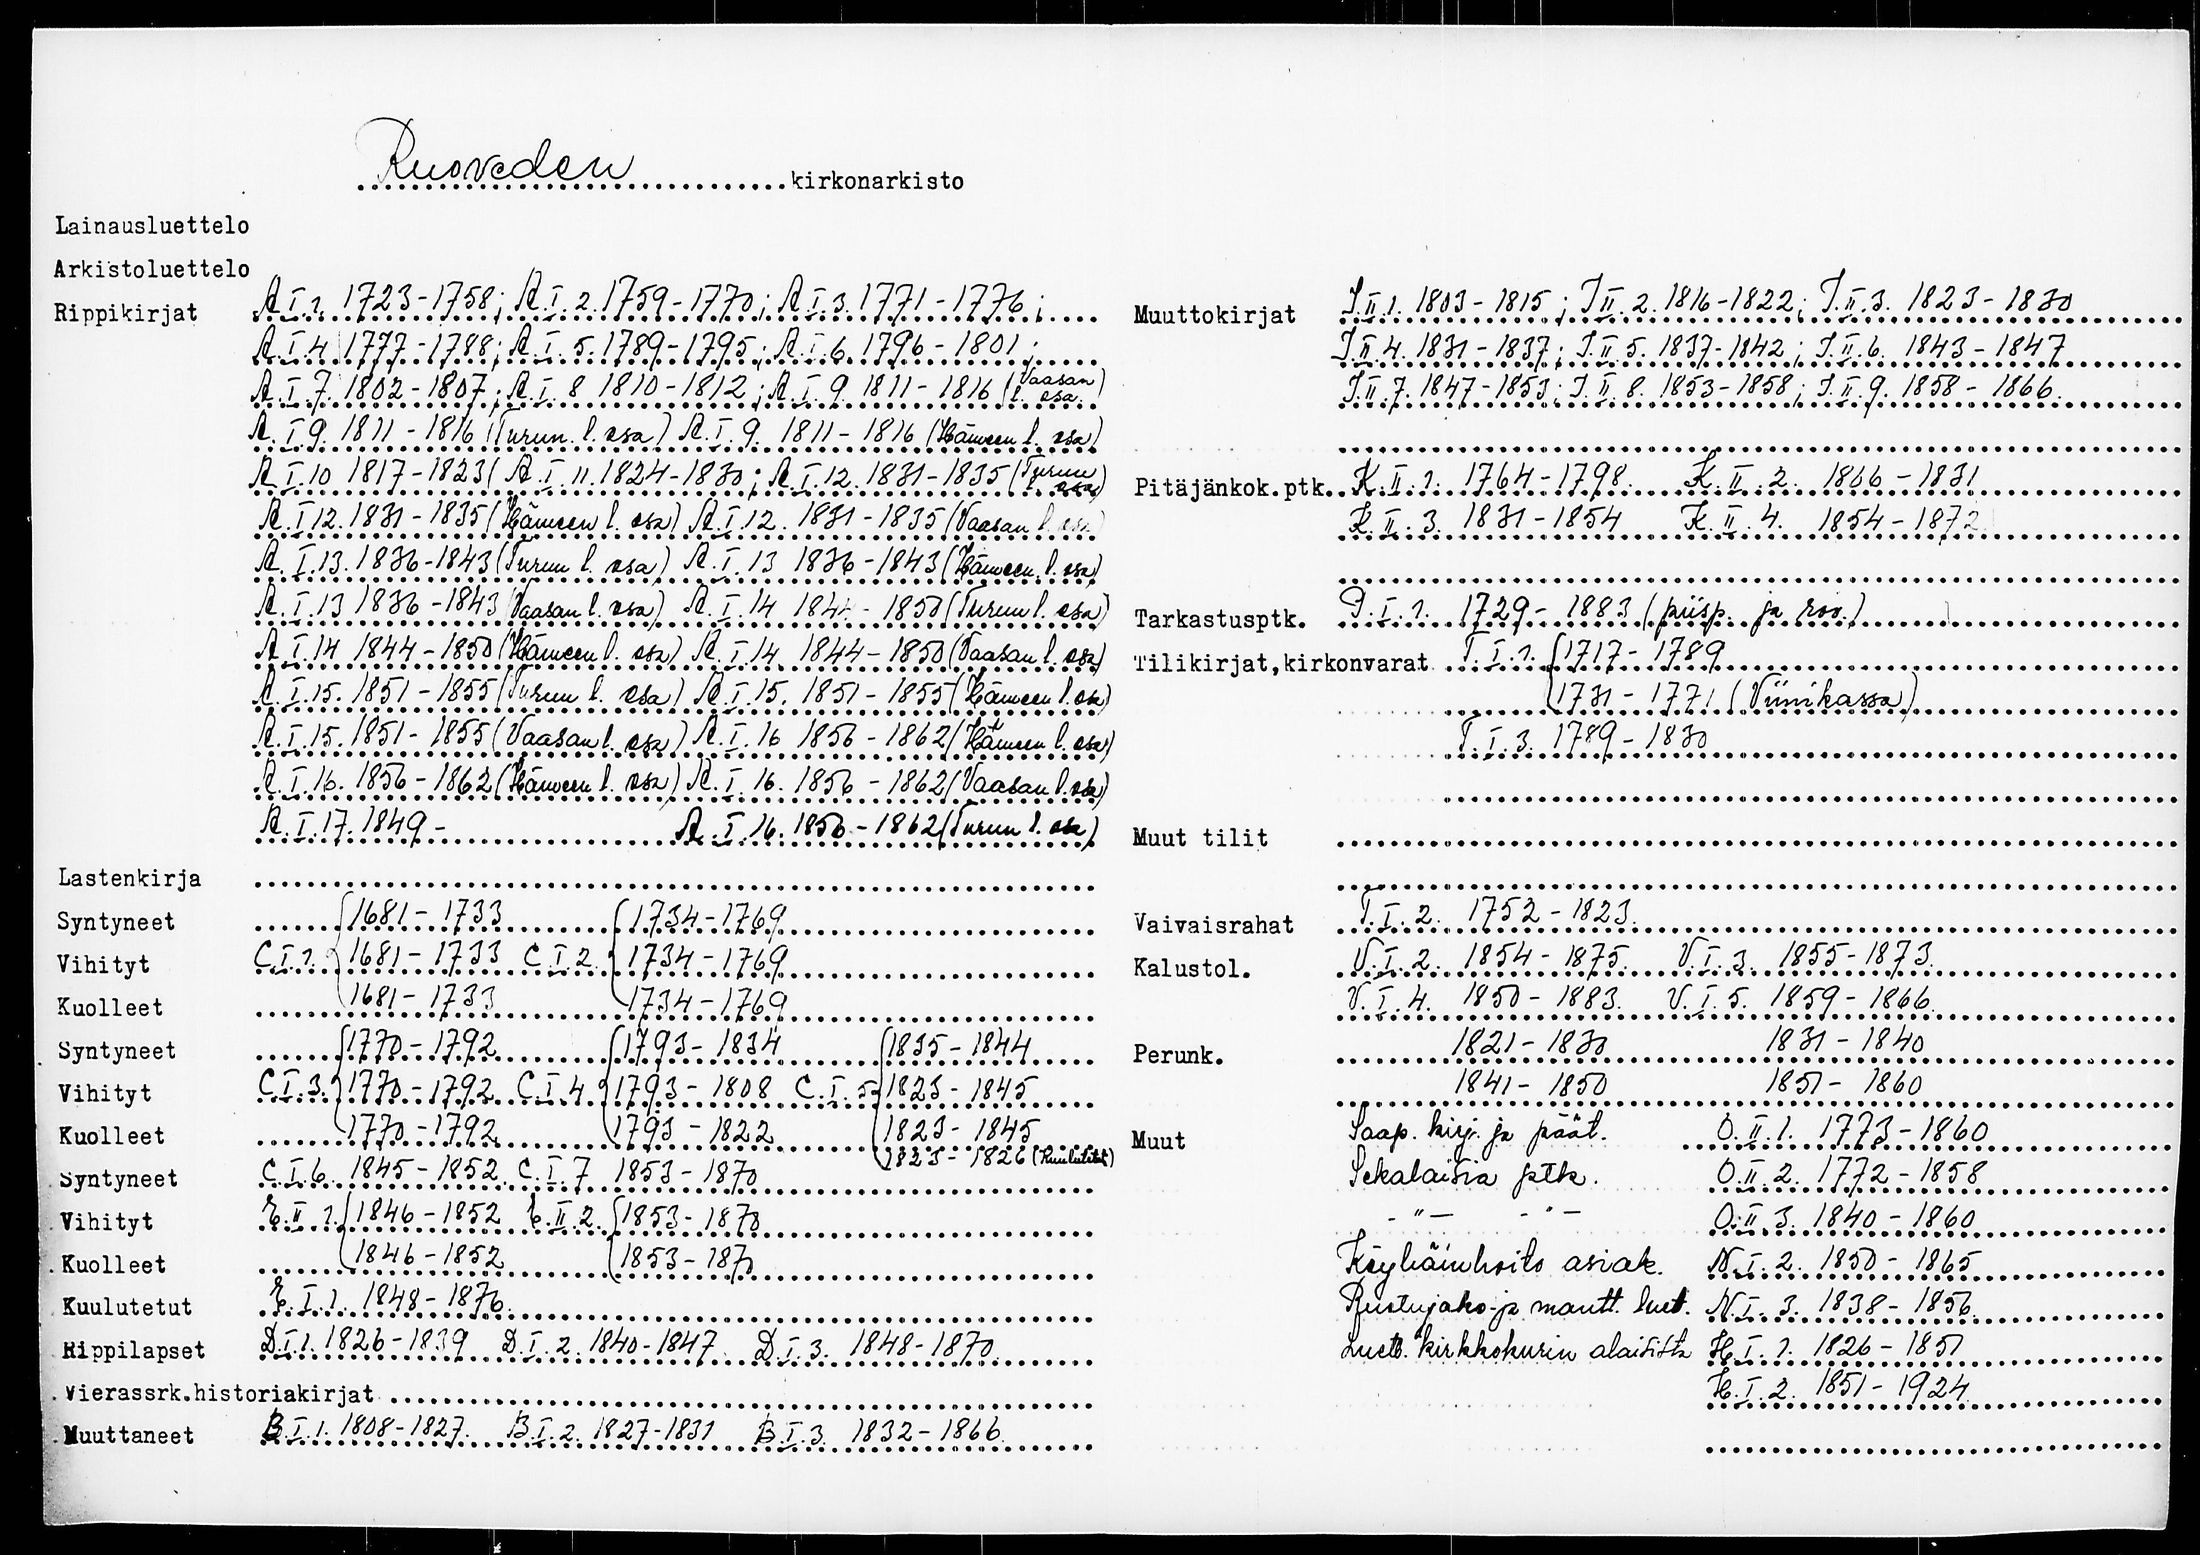 Ruoveden kirkonarkisto
Lainausluettelo
Arkistoluettelo
Rippikirjat A.I.1. 1723-1758; A.I.2. 1759-1770; A.I.3. 1771-1776;
A.I.4 1777-1788; A.I.5. 1789-1795; A.I.6. 1796-1801;
A.I.7. 1802-1807; A.I.8 1810-1812; A.I.9. 1811-1816 (Vaasan l. osa)
A.I.9. 1811-1816 (Turun. l. osa) A.I.9. 1811-1816 (Hämeen l. osa)
A.I.10 1817-1823( A.I.11. 1824-1830; A.I.12. 1831-1835 (Turun osa)
A.I.12. 1831-1835 (Hämeen l. osa) A.I.12. 1831-1835 (Vaasan l. osa)
A.I.13. 1836-1843 (Turun l. osa) A.I.13 1836-1843 (Hämeen l. osa)
A.I.13 1836-1843 (Vaasan l. osa) A.I.14 1844-1850 (Turun l. osa)
A.I.14 1844-1850 (Hämeen l. osa) A.I.14. 1844-1850 (Vaasan l. osa)
A.I.15. 1851-1855 (Turun l. osa) A.I.15. 1851-1855 (Hämeen l. osa)
A.I.15. 1851-1855 (Vaasan l. osa) A.I.16 1856-1862 (Hämeen l. osa)
A.I.16. 1856-1862 (Hämeen l. osa) A.I.16. 1856-1862 (Vaasan l. osa)
A.I.17. 1849- A.I.16. 1856-1862 (Turun l. osa)
Lastenkirja
Syntyneet 1681-1733 1734-1769
Vihityt C.I.1. 1681-1733 C.I.2. 1734-1769
Kuolleet 1681-1733 1734-1769
Syntyneet 1770-1792 1793-1834 1835-1844
Vihityt C.I.3. 1770-1792 C.I.4. 1793-1808 C.I.5. 1823-1845
Kuolleet 1770-1792 1793-1822 1823-1845
1823-1826 (Kuulutetut)
Syntyneet C.I.6. 1845-1852. C.I.7 1853-1870
Vihityt E.II.1. 1846-1852 E.II.2. 1853-1870
Kuolleet 1846-1852 1853-1870
Kuulutetut E.I.1. 1848-1876.
Rippilapset D.I.1. 1826-1839 D.I.2. 1840-1847 D.I.3. 1848-1870.
Vierassrk.historiakirjat
Muuttaneet B.I.1. 1808-1827. B.I.2. 1827-1831 B.I.3. 1832-1866.
Muuttokirjat J.II.1. 1803-1815; J.II.2. 1816-1822; J.II.3. 1823-1830
J.II.4. 1831-1837; J.II.5. 1837-1842; J.II.6. 1843-1847
J.II.7. 1847-1853; J.II.8. 1853-1858; J.II.9. 1858-1866.
Pitäjänkok.ptk. K.II.1. 1764-1798. K.II.2. 1866-1831
K.II.3. 1831-1854 K.II.4. 1854-1872
Tarkastusptk. P.I.1. 1729-1883 (piisp. ja rov.)
Tilikirjat,kirkonvarat T.I.1. 1717-1789
1731-1771 (Viinikassa)
T.I.3. 1789-1830
Muut tilit
Vaivaisrahat T.I.2. 1752-1823.
Kalustol. V.I.2. 1854-1875. V.I.3. 1855-1873.
V.I.4. 1850-1883. V.I.5. 1859-1866.
Perunk. 1821-1830 1831-1840
1841-1850 1851-1860
Muut Saap. kirj. ja päät. O.II.1. 1773-1860
Sekalaisia ptk. O.II.2. 1772-1858
-"- -"- O.II.3. 1840-1860
Köyhäinhoito asiak. N.I.2. 1850-1865
Ruotujako-ja mantt. luet. N.I.3. 1838-1856.
Luett. kirkkokurin alaisista H.I.1. 1826-1851
H.I.2. 1851-1924.